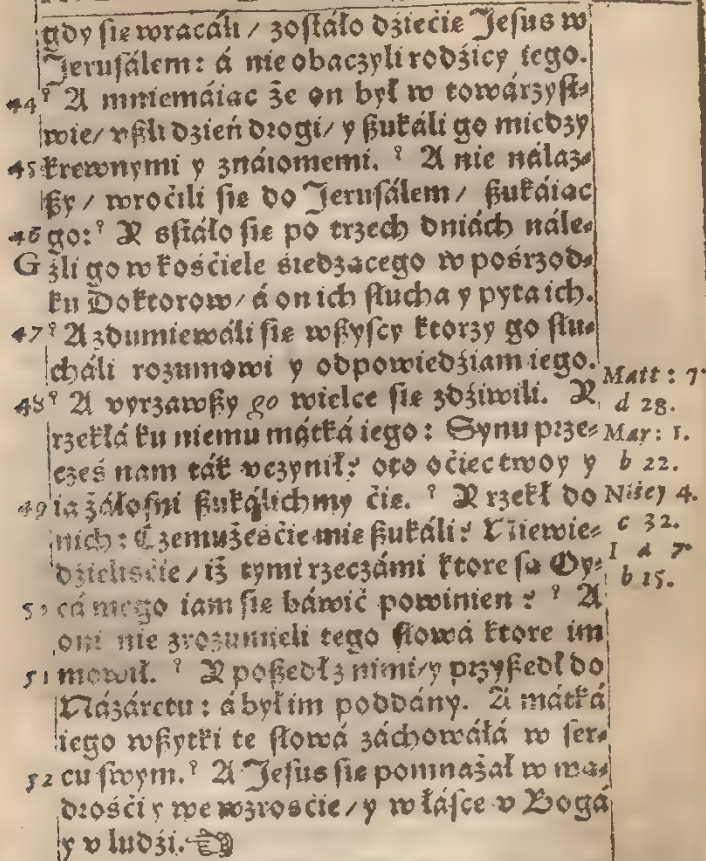 gdy sie wracáli / zostáło dziećie Jesus w
Jerusálem: á nie obaczyli rodźicy iego.
44 A mniemáiac że on był w towárzyst⸗
wie / vßli dzień drogi / y ßukáli go miedzy
45 krewnymi y znáiomemi. A nie nálaz⸗
ßy / wroćili sie do Jerusálem / ßukáiac
46 go: Y sstáło sie po trzech dniách nále⸗
G źli go w kośćiele siedzacego w pośrzod⸗
ku Doktorow / á on ich słucha y pyta ich.
47 A zdumiewáli sie wßyscy ktorzy go słu⸗
cháli rozumowi y odpowiedźiam iego.
48 A vyrzawßy go wielce sie zdźiwili. Y
rzekłá ku niemu mátká iego: Synu prze⸗
cześ nam ták vczynił? oto oćiec twoy y
49 ia żáłosni ßukálichmy ćie. Y rzekł do
nich: Czemużeśćie mie ßukáli? Niewie⸗
dźieliśćie / iż tymi rzeczámi ktore sa Oy⸗
50 cá mego iam sie báwić powinien? A
oni nie zrozumieli tego słowá ktore im
51 mowił. Y poßedł z nimi / y przyßedł do
Názáretu: á był im poddány. A mátká
iego wßytki te słowá záchowáłá w ser⸗
52 cu swym. A Jesus sie pomnażał w ma⸗
drosći y we wzrosćie / y w łásce v Bogá
y v ludźi.
Matt: 7.
d 28.
Mar: 1.
b 22.
Niżey 4.
c 32.
I d 7.
b 15.